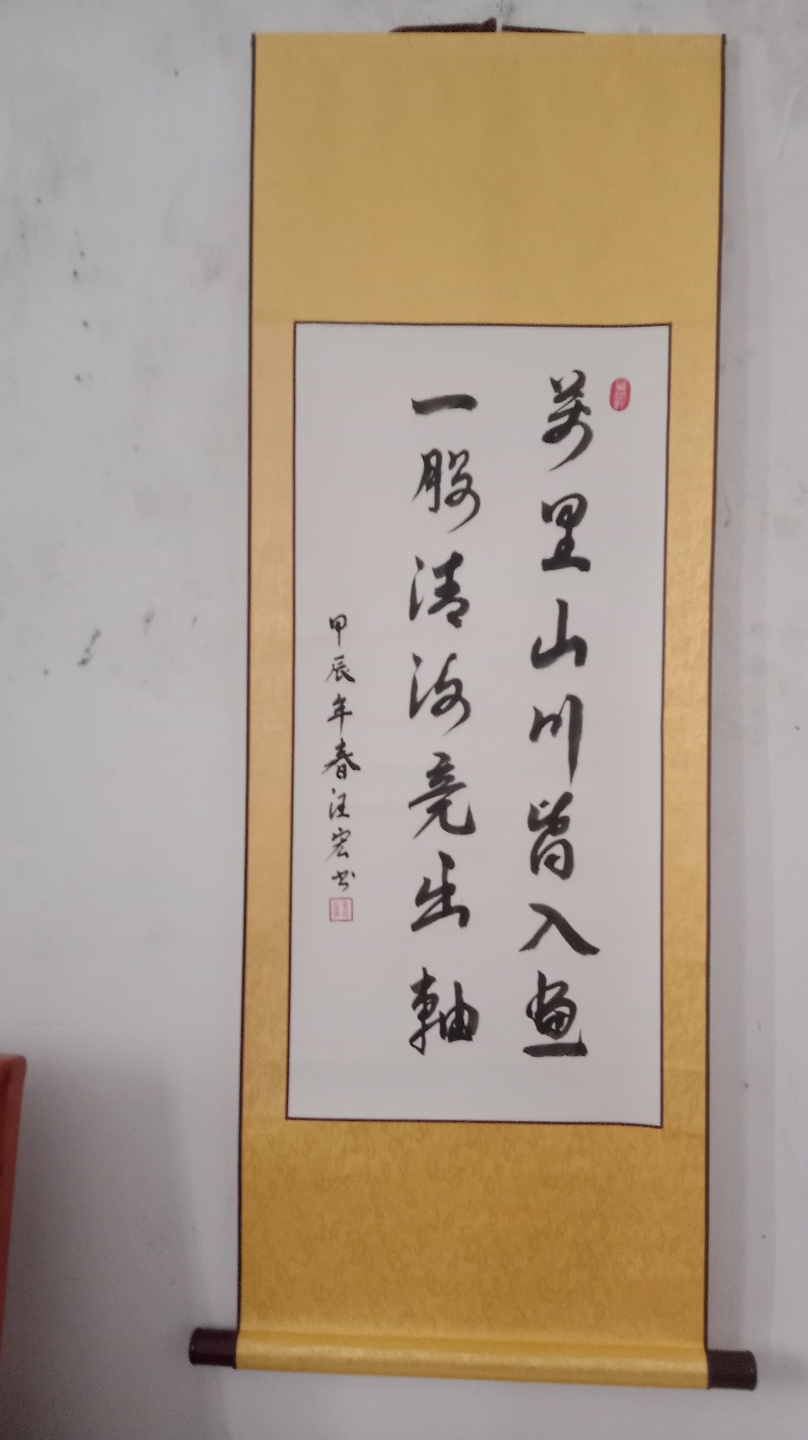 萬里山川皆入畫
一股清竟出軸
甲辰年春汪宏书